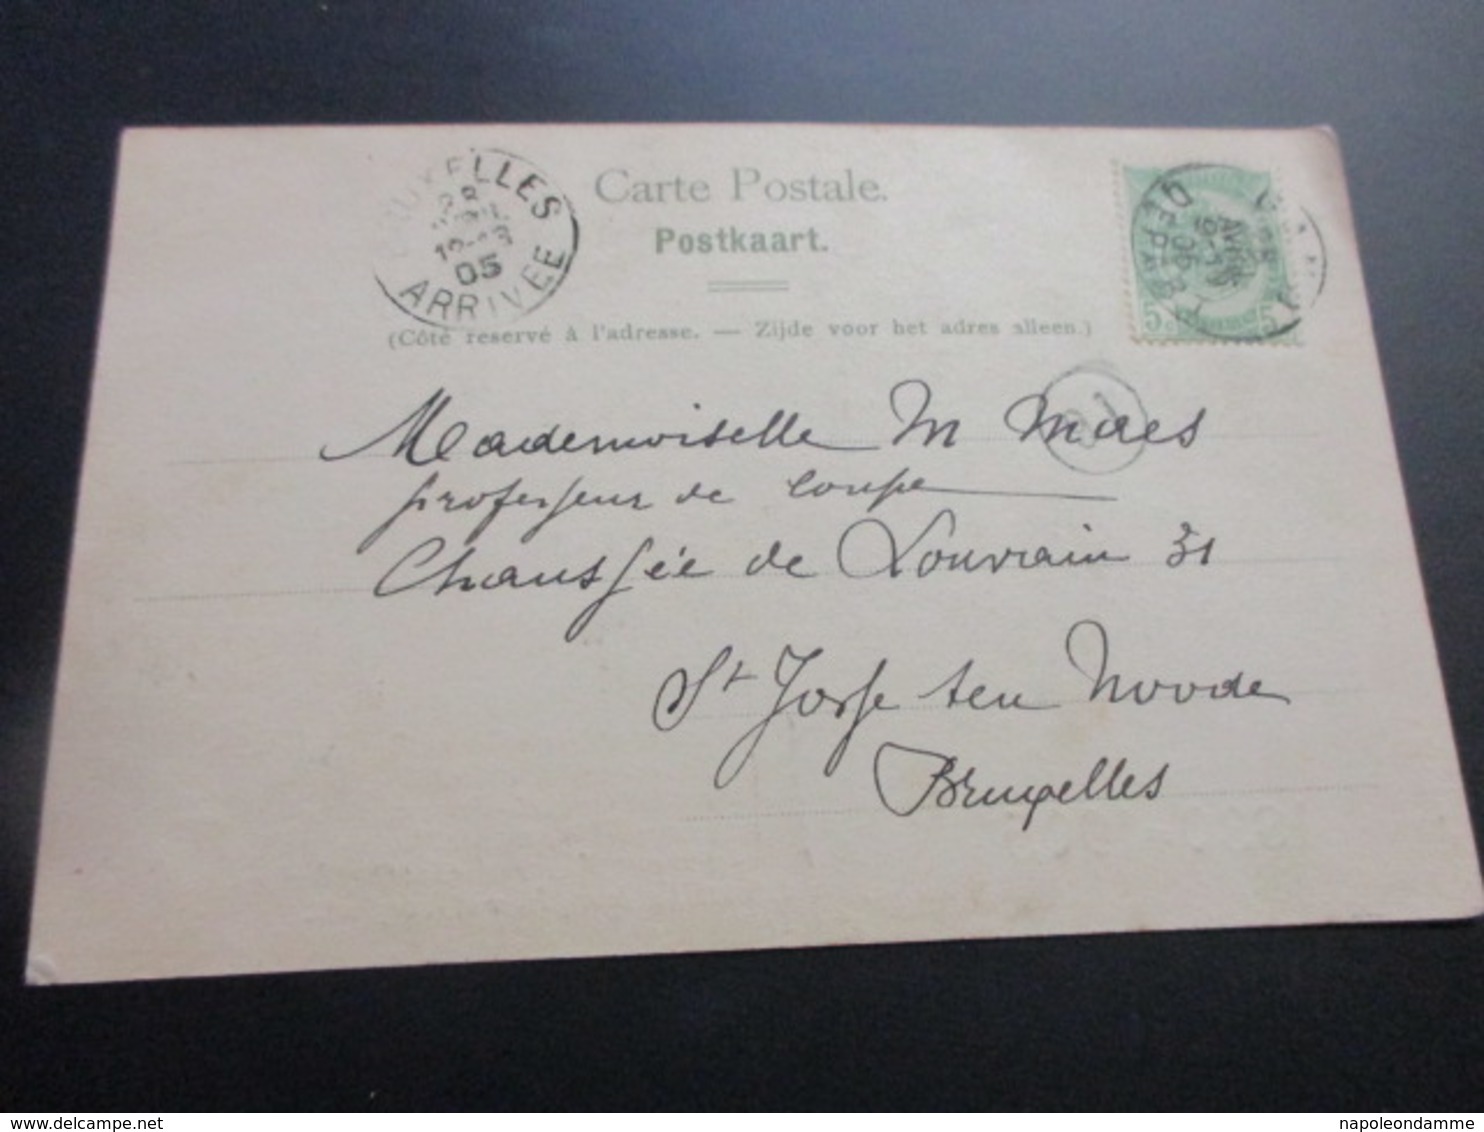 Carte Postale.
Postkaart.
(Côté reservé à l'adresse. — Zijde voor het adres alleen.)
BRUXELLES
05
ARRIVEE
DEPART
AVRIL
5 5
Mademoiselle M Maes
professeur de coupe
Chaussée de Louvain 31
St Josse ten Noode
Bruxelles
delcampe.net
napoleondamme